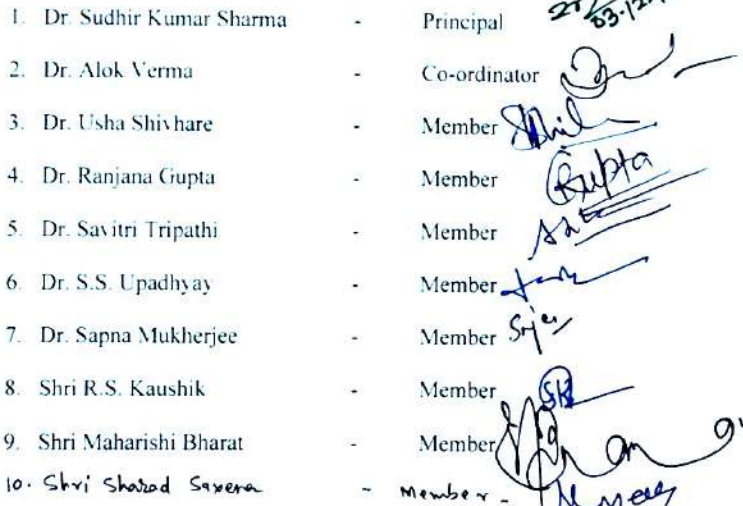 1. Dr. Sudhir Kumar Sharma - Principal
2. Dr. Alok Verma - Co-ordinator
3. Dr. Usha Shivhare - Member
4. Dr. Ranjana Gupta - Member Gupta
5. Dr. Savitri Tripathi - Member
6. Dr. S.S. Upadhyay - Member
7. Dr. Sapna Mukherjee - Member
8. Shri R.S. Kaushik - Member
9. Shri Maharishi Bharat - Member
10. Shri Sharad Saxena - Member -